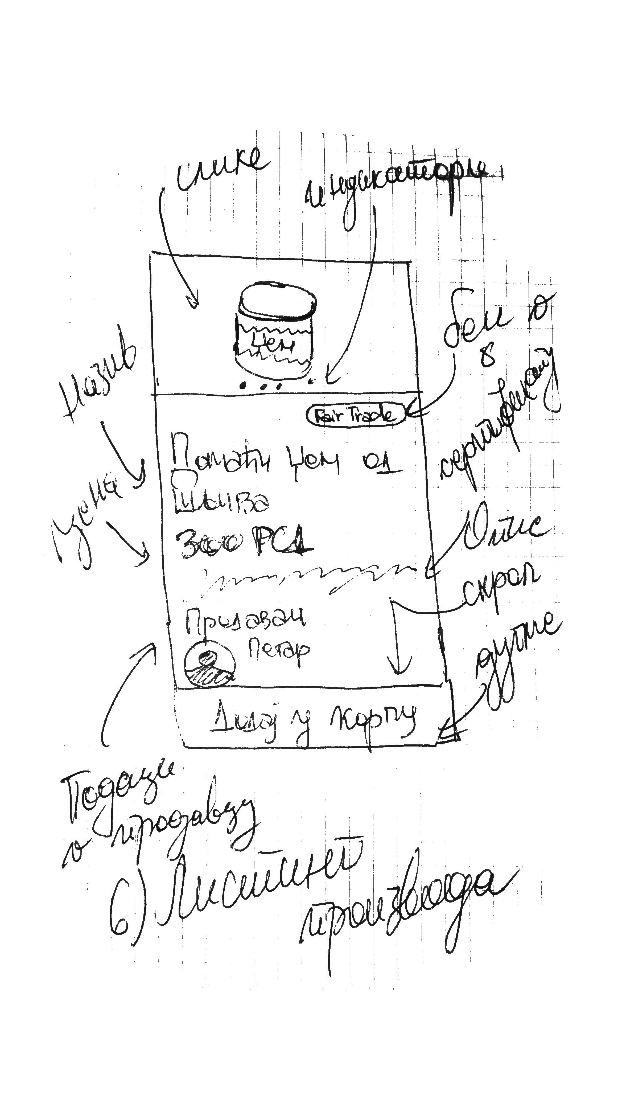 слике
индикатори
Џем
Назив
Fair Trade
Домаћи џем од
Шљива
300 РСД
цена
Опис
скрол
Продавац
Петар
дугме
Додај у корпу
Подаци
о продавцу
6) Листинг
производа